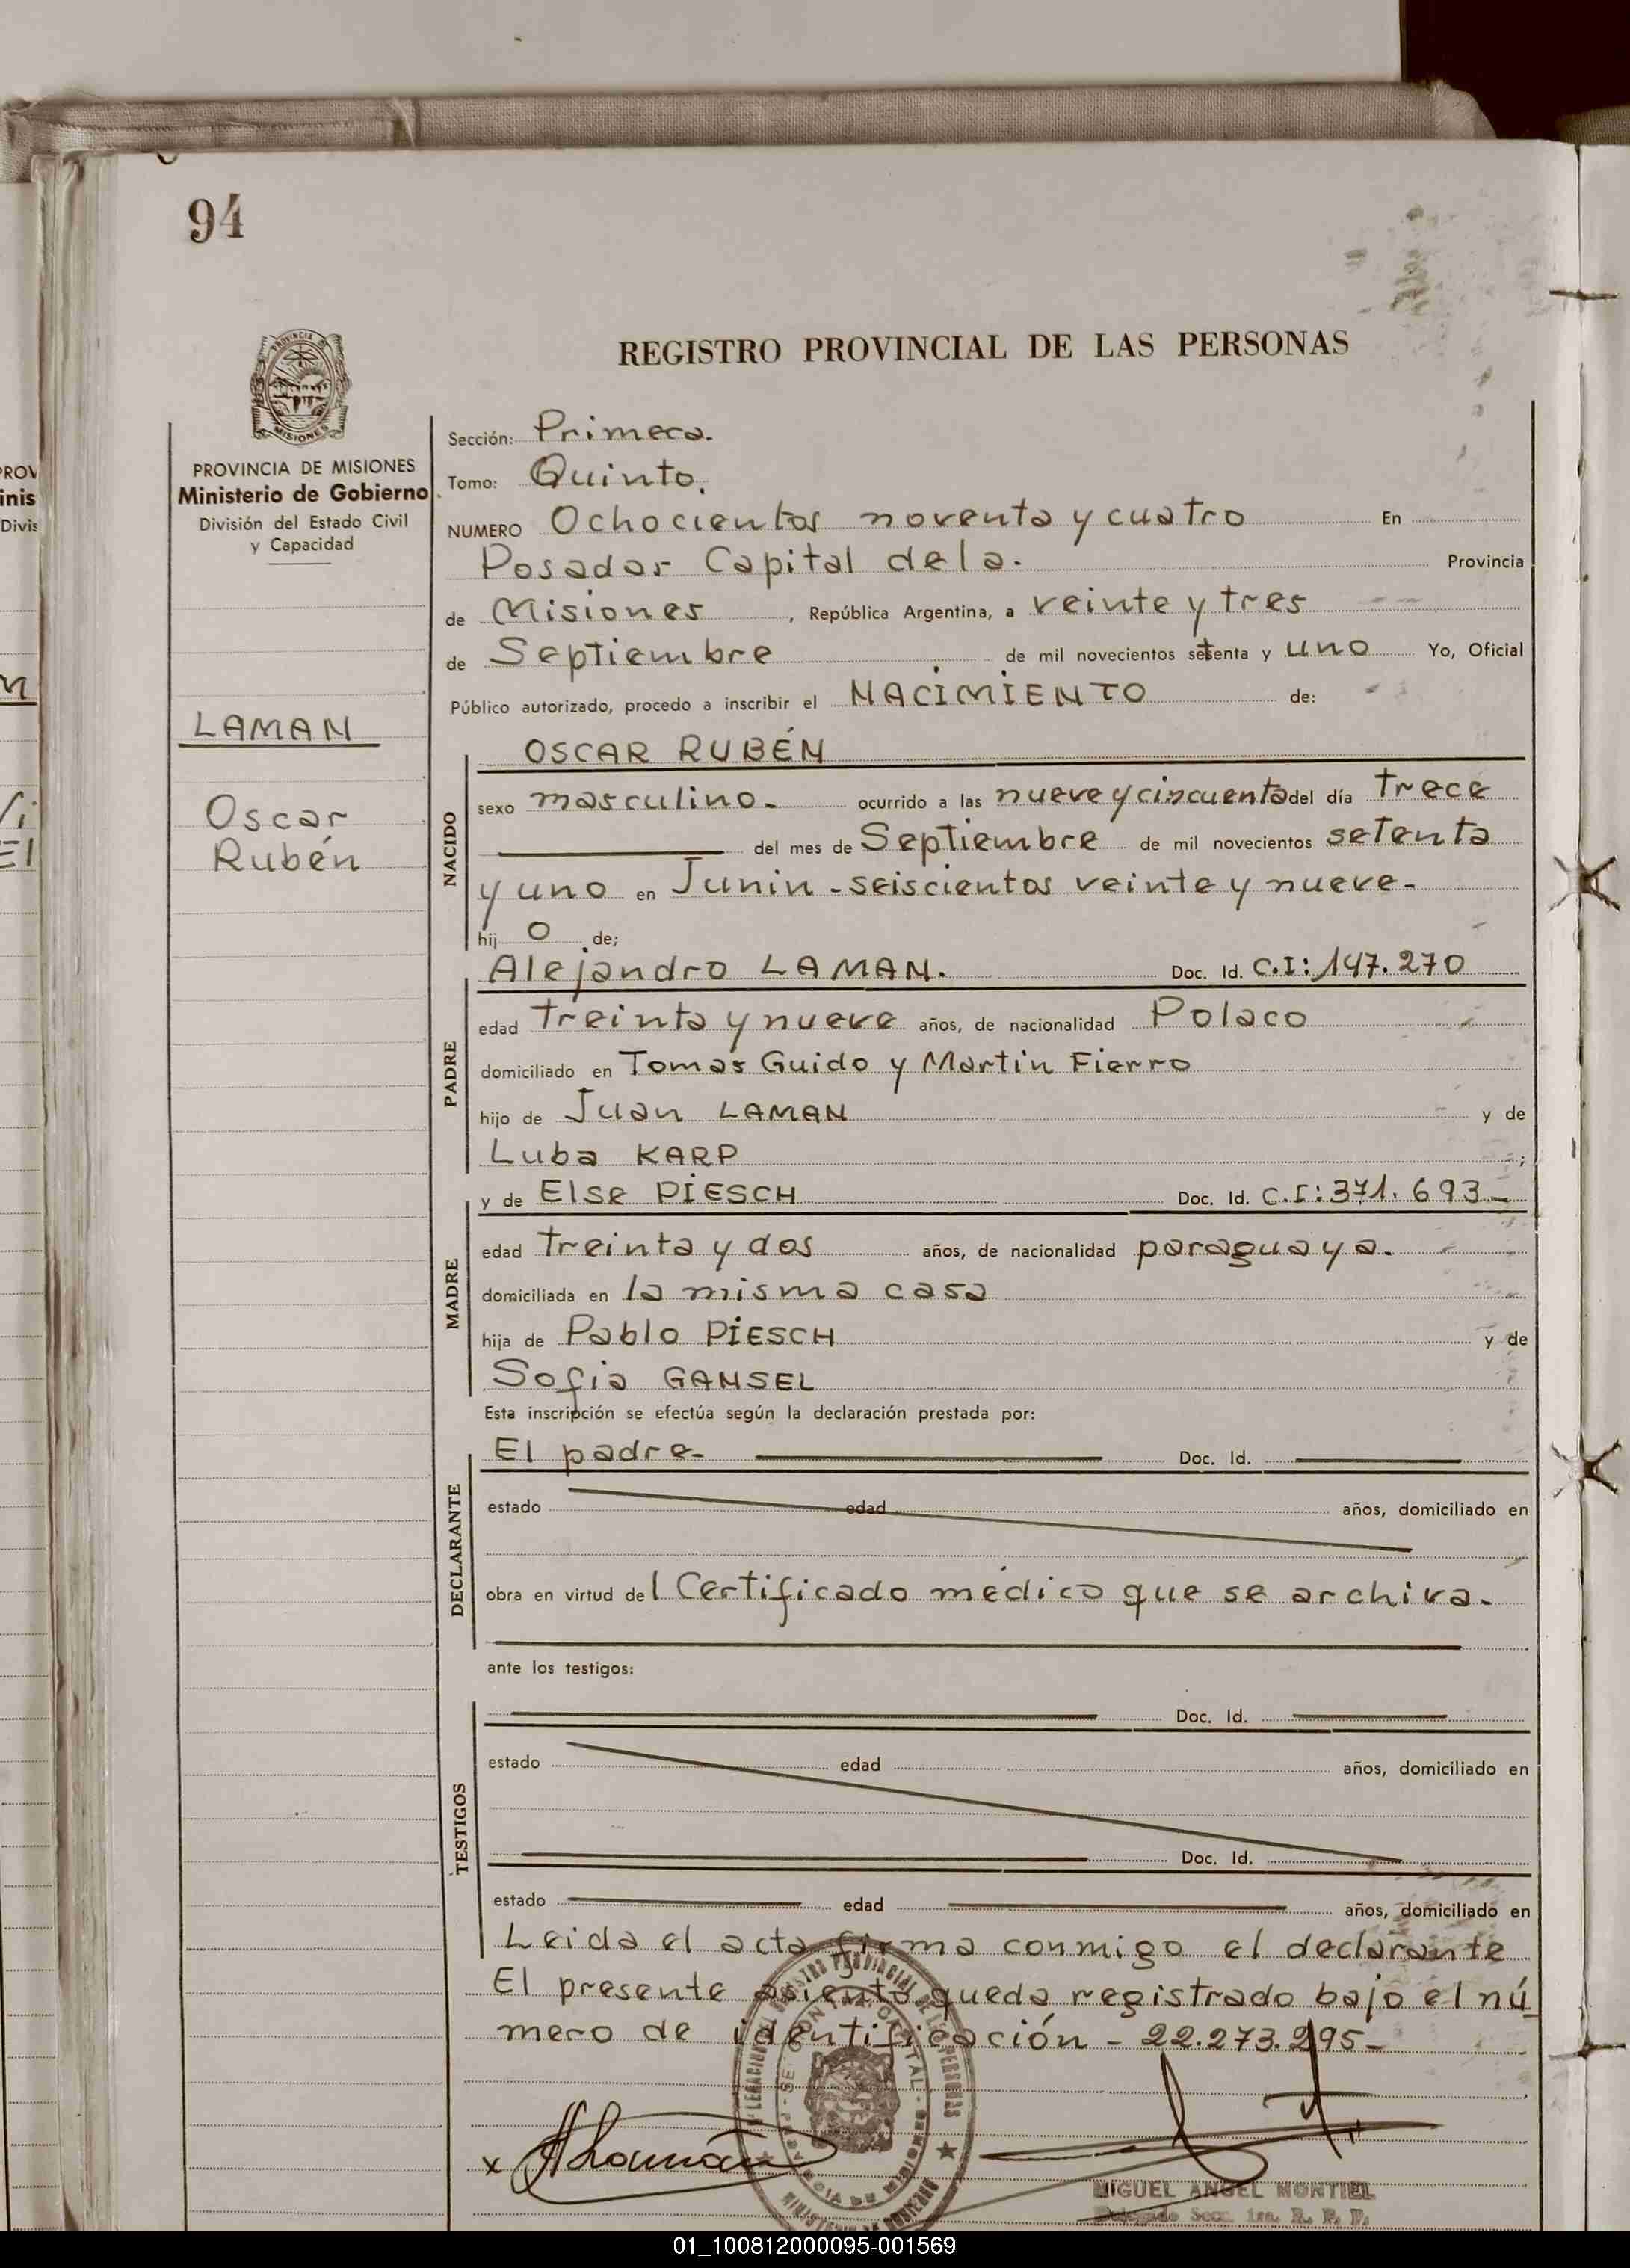 94
REGISTRO PROVINCIAL DE LAS PERSONAS
PROVINCIA DE MISIONES
Ministerio de Gobierno
División del Estado Civil
y Capacidad
LAMAN
Oscar
Rubén
Sección: Primera.
Tomo: Quinto.
NUMERO Ochocientos noventa y cuatro En
Posadas Capital de la. Provincia
de Misiones, República Argentina, a veinte y tres
de Septiembre de mil novecientos setenta y uno Yo, Oficial
Público autorizado, procedo a inscribir el NACIMIENTO de:
OSCAR RUBÉN
NACIDO
sexo masculino. ocurrido a las nueve y cincuenta del día trece
del mes de Septiembre de mil novecientos setenta
y uno en Junin - seiscientos veinte y nueve-
hij o de;
Alejandro LAMAN. Doc. Id. C.I: 147.270
PADRE
edad treinta y nueve años, de nacionalidad Polaco
domiciliado en Tomás Guido y Martin Fierro
hijo de Juan LAMAN y de
Luba KARP ;
y de Else PIESCH Doc. Id. C.I: 371.693-
MADRE
edad treinta y dos años, de nacionalidad paraguaya.
domiciliada en la misma casa
hija de Pablo PIESCH y de
Sofia GANSEL
Esta inscripción se efectúa según la declaración prestada por:
El padre- Doc. Id.
DECLARANTE
estado edad años, domiciliado en
obra en virtud del Certificado médico que se archiva.
ante los testigos:
Doc. Id.
TESTIGOS
estado edad años, domiciliado en
Doc. Id.
estado edad años, domiciliado en
Leida el acta firma conmigo el declarante
El presente asiento queda registrado bajo el nú
mero de identificación - 22.273.295-
MIGUEL ANGEL MONTIEL
Delegado Secc. 1ra. R. P. P.
01_100812000095-001569